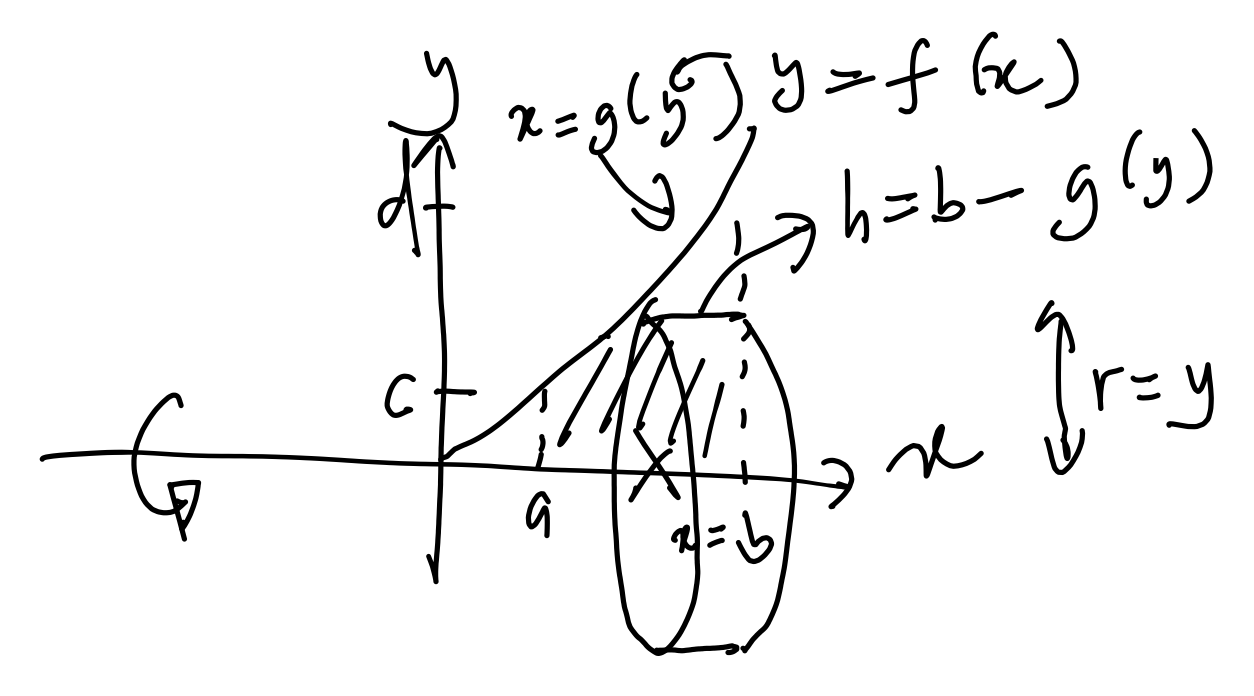 y
x = g(y)
y = f(x)
d
h = b - g(y)
c
r = y
x
a
x = b